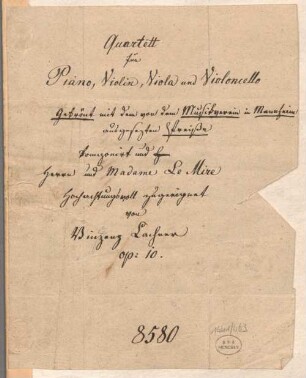 Quartett
für
Piano, Violin, Viola und Violoncello
Gekrönt mit dem von dem Musikverein in Mannheim
ausgesezten Preiße
komponirt und
Herrn und Madame Le Mire
Hochachtungsvoll zugeeignet
von
Vinzenz Lachner
op: 10.
8580